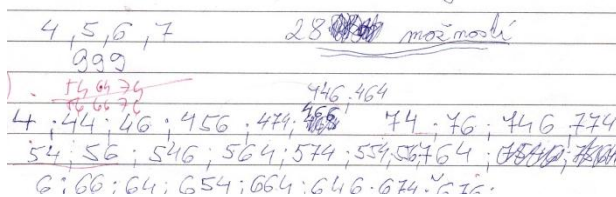 4, 5, 6, 7 28 možností
999
54 64 74
446, 464
4 ; 44 ; 46 ; 456 ; 474 ; 466 74 ; 76 ; 746, 774
54 ; 56 ; 546 ; 564 ; 574 ; 554, 56, 764 ;
6 ; 66 ; 64 ; 654 ; 664 ; 646 ; 674 ; 676 ;